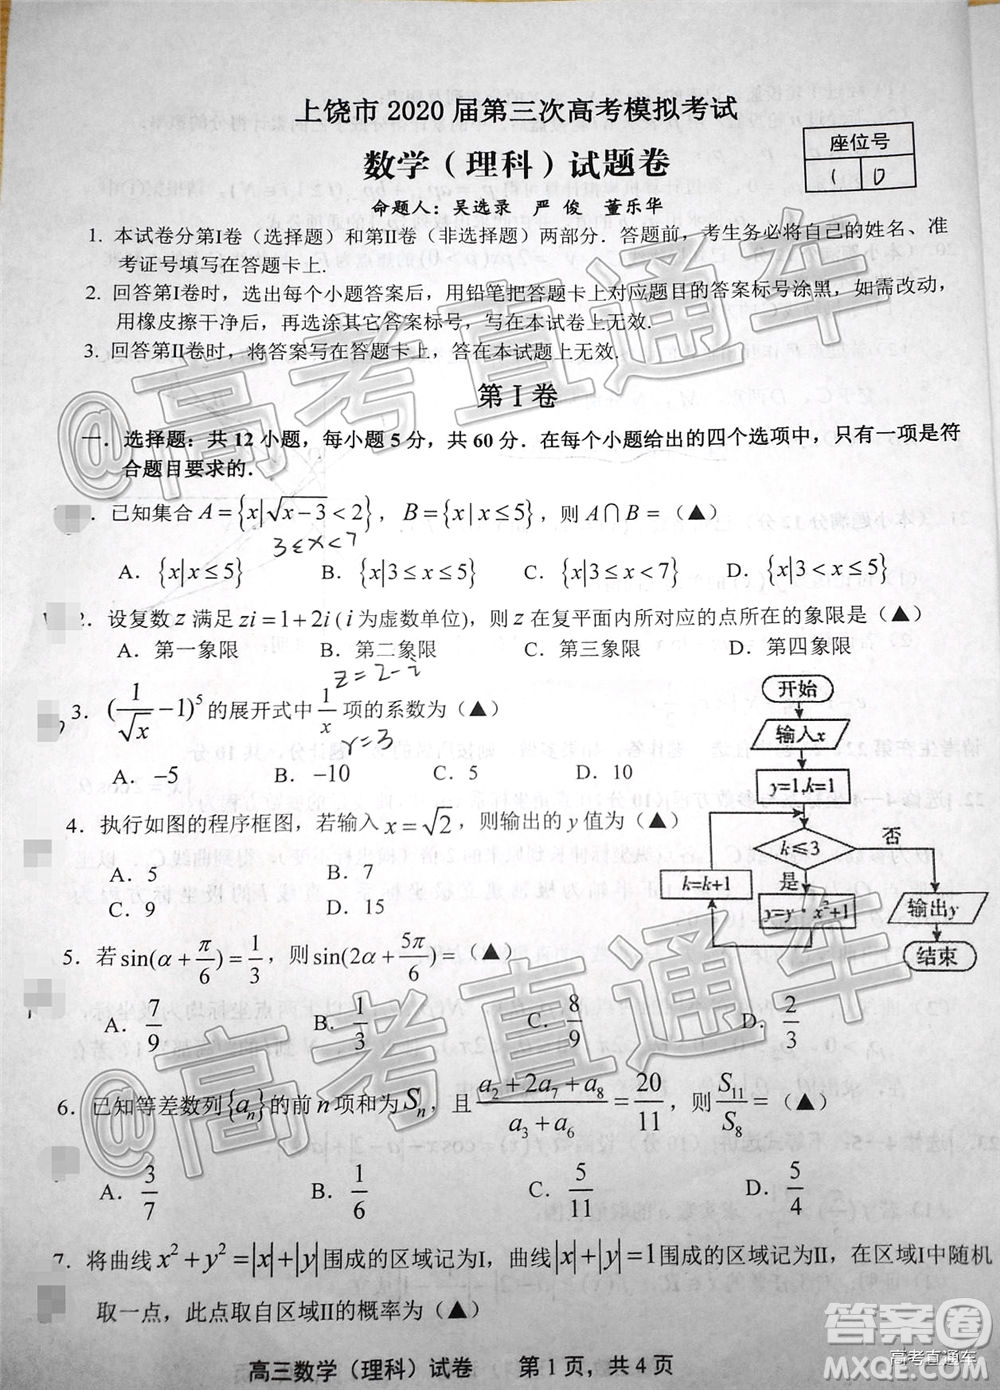 上饶市 2020 届第三次高考模拟考试
数学（理科）试题卷
座位号
1 0
命题人：吴选录 严 俊 董乐华
1. 本试卷分第I卷（选择题）和第II卷（非选择题）两部分．答题前，考生务必将自己的姓名、准
考证号填写在答题卡上.
2. 回答第I卷时，选出每个小题答案后，用铅笔把答题卡上对应题目的答案标号涂黑，如需改动，
用橡皮擦干净后，再选涂其它答案标号，写在本试卷上无效.
3. 回答第II卷时，将答案写在答题卡上，答在本试题上无效.
第 I 卷
一．选择题：共 12 小题，每小题 5 分，共 60 分．在每个小题给出的四个选项中，只有一项是符
合题目要求的．
．已知集合 A={x|√(x-3)<2}，B={x|x≤5}，则 A∩B=（▲）
3≤x<7
A．{x|x≤5} B．{x|3≤x≤5} C．{x|3≤x<7} D．{x|3<x≤5}
2．设复数 z 满足 zi=1+2i (i 为虚数单位)，则 z 在复平面内所对应的点所在的象限是（▲）
A．第一象限 B．第二象限 C．第三象限 D．第四象限
z=2-i
3．(1/√x -1)^5 的展开式中 1/x 项的系数为（▲）
r=3
A．-5 B．-10 C．5 D．10
4．执行如图的程序框图，若输入 x=√2，则输出的 y 值为（▲）
A．5 B．7
C．9 D．15
开始
输入x
y=1,k=1
k≤3
否
是
k=k+1
y=y·x²+1
输出y
结束
5．若 sin(α+π/6)=1/3，则 sin(2α+5π/6)=（▲）
A．7/9 B．1/3 C．8/9 D．2/3
6．已知等差数列{a_n}的前 n 项和为 S_n，且 (a_2+2a_7+a_8)/(a_3+a_6)=20/11，则 S_11/S_8=（▲）
A．3/7 B．1/6 C．5/11 D．5/4
7．将曲线 x²+y²=|x|+|y| 围成的区域记为I，曲线|x|+|y|=1围成的区域记为II，在区域I中随机
取一点，此点取自区域II的概率为（▲）
高三数学（理科）试卷 第 1 页，共 4 页
@高考直通车
@高考直通车
答案卷
MXQE.COM
高考直通车